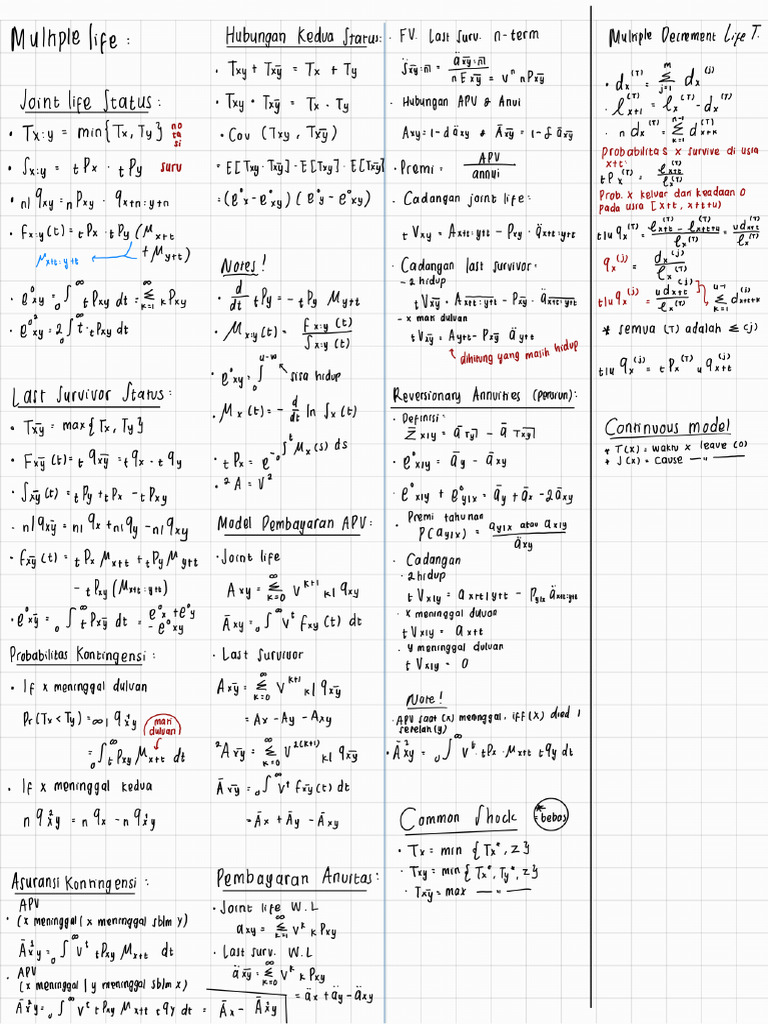 Multiple life :
Joint life Status :
• Tx:y = min{Tx, Ty} notasi
• Sx:y = tPx · tPy surv
• n|qxy = nPxy · qx+n:y+n
• fx:y(t) = tPx · tPy (μx+t + μy+t)
μx+t:y+t
• e°xy = ₀∫^∞ tPxy dt = Σ_{k=1}^∞ kPxy
• e°²xy = 2₀∫^∞ t · tPxy dt
Last Survivor Status :
• Tx̅y̅ = max{Tx, Ty}
• Fx̅y̅(t) = tqx̅y̅ = tqx · tqy
• Sx̅y̅(t) = tPy + tPx - tPxy
• n|qx̅y̅ = n|qx + n|qy - n|qxy
• fx̅y̅(t) = tPx μx+t + tPy μy+t
- tPxy (μx+t:y+t)
• e°x̅y̅ = ₀∫^∞ tPx̅y̅ dt = e°x + e°y - e°xy
Probabilitas Kontingensi :
• If x meninggal duluan
Pr(Tx < Ty) = ∞|q¹xy mati duluan
= ₀∫^∞ tPxy μx+t dt
• If x meninggal kedua
nq²xy = nqx - nq¹xy
Asuransi Kontingensi :
• APV
(x meninggal | x meninggal sblm y)
Ā¹xy = ₀∫^∞ v^t tPxy μx+t dt
• APV
(x meninggal | y meninggal sblm x)
Ā²xy = ₀∫^∞ v^t tPxy μx+t tqy dt = Āx - Ā¹xy
Hubungan Kedua Status :
• Txy + Tx̅y̅ = Tx + Ty
• Txy · Tx̅y̅ = Tx · Ty
• Cov (Txy, Tx̅y̅)
= E[Txy · Tx̅y̅] - E[Txy] · E[Tx̅y̅]
= (e°x - e°xy) (e°y - e°xy)
Notes !
• d/dt tPy = - tPy μy+t
• μx:y(t) = fx:y(t) / Sx:y(t)
• e°xy = ₀∫^{ω-u} sisa hidup
• μx(t) = - d/dt ln Sx(t)
• tPx = e^{-₀∫^t μx(s) ds}
• ²A = v²
Model Pembayaran APV :
• Joint life
Axy = Σ_{k=0}^∞ v^{k+1} k|qxy
Āxy = ₀∫^∞ v^t fxy(t) dt
• Last survivor
Ax̅y̅ = Σ_{k=0}^∞ v^{k+1} k|qx̅y̅
= Ax - Ay - Axy
²Ax̅y̅ = Σ_{k=0}^∞ v^{2(k+1)} k|qx̅y̅
Āx̅y̅ = ₀∫^∞ v^t fx̅y̅(t) dt
= Āx + Āy - Āxy
Pembayaran Anuitas :
• Joint life W.L
axy = Σ_{k=1}^∞ v^k kPxy
• Last surv. W.L
äx̅y̅ = Σ_{k=0}^∞ v^k kPxy
= äx + äy - äxy
• FV. Last Surv. n-term
S̈x̅y̅:n̅| = äx̅y̅:n̅| / nEx̅y̅ = v^n nPx̅y̅
• Hubungan APV & Anui
Axy = 1 - d äxy & Āx̅y̅ = 1 - δ āx̅y̅
• Premi = APV / annui
• Cadangan joint life :
tVxy = Ax+t:y+t - Pxy · äx+t:y+t
• Cadangan last survivor :
- 2 hidup
tVx̅y̅ = Ax+t:y+t - Px̅y̅ · äx+t:y+t
- x mati duluan
tVx̅y̅ = Ay+t - Px̅y̅ äy+t
dihitung yang masih hidup
Reversionary Annuities (pensiun) :
• Definisi :
Z̅x|y = āTy| - āTxy|
• e°x|y = āy - āxy
• e°x|y + e°y|x = āy + āx - 2āxy
• Premi tahunan
P(ay|x) = ay|x atau ax|y / äxy
• Cadangan
• 2 hidup
tVx|y = ax+t|y+t - Py|x äx+t:y+t
• x meninggal duluan
tVx|y = ax+t
• y meninggal duluan
tVx|y = 0
Note !
• APV saat (x) meninggal, iff (x) died 1 setelah (y)
• Ā²xy = ₀∫^∞ v^t · tPx · μx+t tqy dt
Common Shock * = bebas
• Tx = min {Tx*, Z}
• Txy = min {Tx*, Ty*, Z}
• Tx̅y̅ = max — " —
Multiple Decrement Life T.
• dx^(τ) = Σ_{j=1}^m dx^(j)
• ℓx+1^(τ) = ℓx^(τ) - dx^(τ)
• ndx^(τ) = Σ_{k=0}^{n-1} dx+k^(τ)
Probabilitas x survive di usia x+t :
tPx^(τ) = ℓx+t^(τ) / ℓx^(τ)
Prob. x keluar dari keadaan 0
pada usia [x+t, x+t+u)
t|uqx^(τ) = ℓx+t^(τ) - ℓx+t+u^(τ) / ℓx^(τ) = udx+t^(τ) / ℓx^(τ)
qx^(j) = dx^(j) / ℓx^(τ)
t|uqx^(j) = udx+t^(j) / ℓx^(τ) → Σ_{k=1}^{u-1} dx+t+k^(j)
* semua (τ) adalah Σ(j)
t|uqx^(j) = tPx^(τ) uqx+t^(j)
Continuous model
* T(x) = waktu x leave (0)
* J(x) = cause — " —